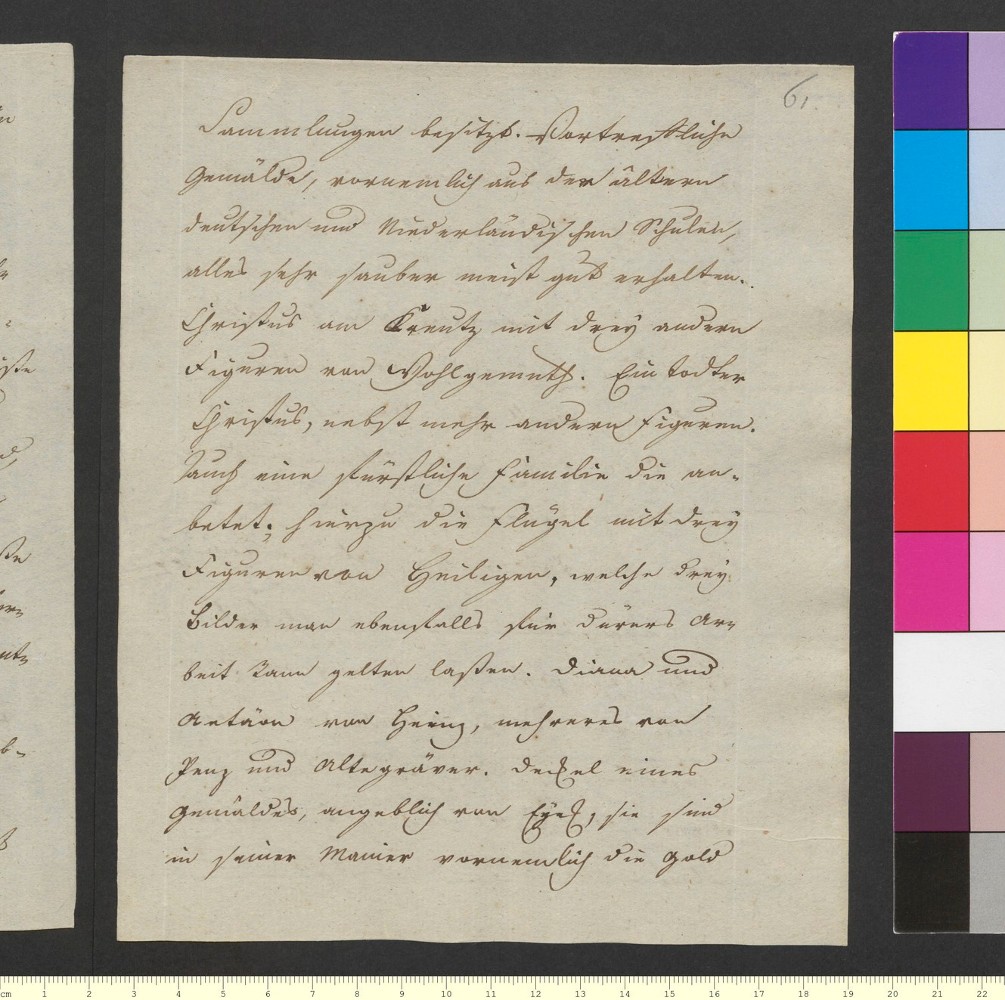 61.
Sammlungen besitzt. Vortrefliche
Gemälde, vornemlich aus der ältern
deutschen und Niederländischen Schulen,
alles sehr sauber meist gut erhalten.
Christus am Kreutz mit drey andern
Figuren von Wohlgemuth. Ein todter
Christus, nebst mehr andern Figuren.
Auch eine fürstliche Familie die an-
betet; hierzu die Flügel mit drey
Figuren von Heiligen, welche drey
Bilder man ebenfalls für Dürers Ar-
beit kann gelten laßen. Diana und
Actäon von Heinz, mehreres von
Penz und Altegräver. Deckel eines
Gemäldes, angeblich von Eyck, sie sind
in seiner Manier vornemlich die Gold